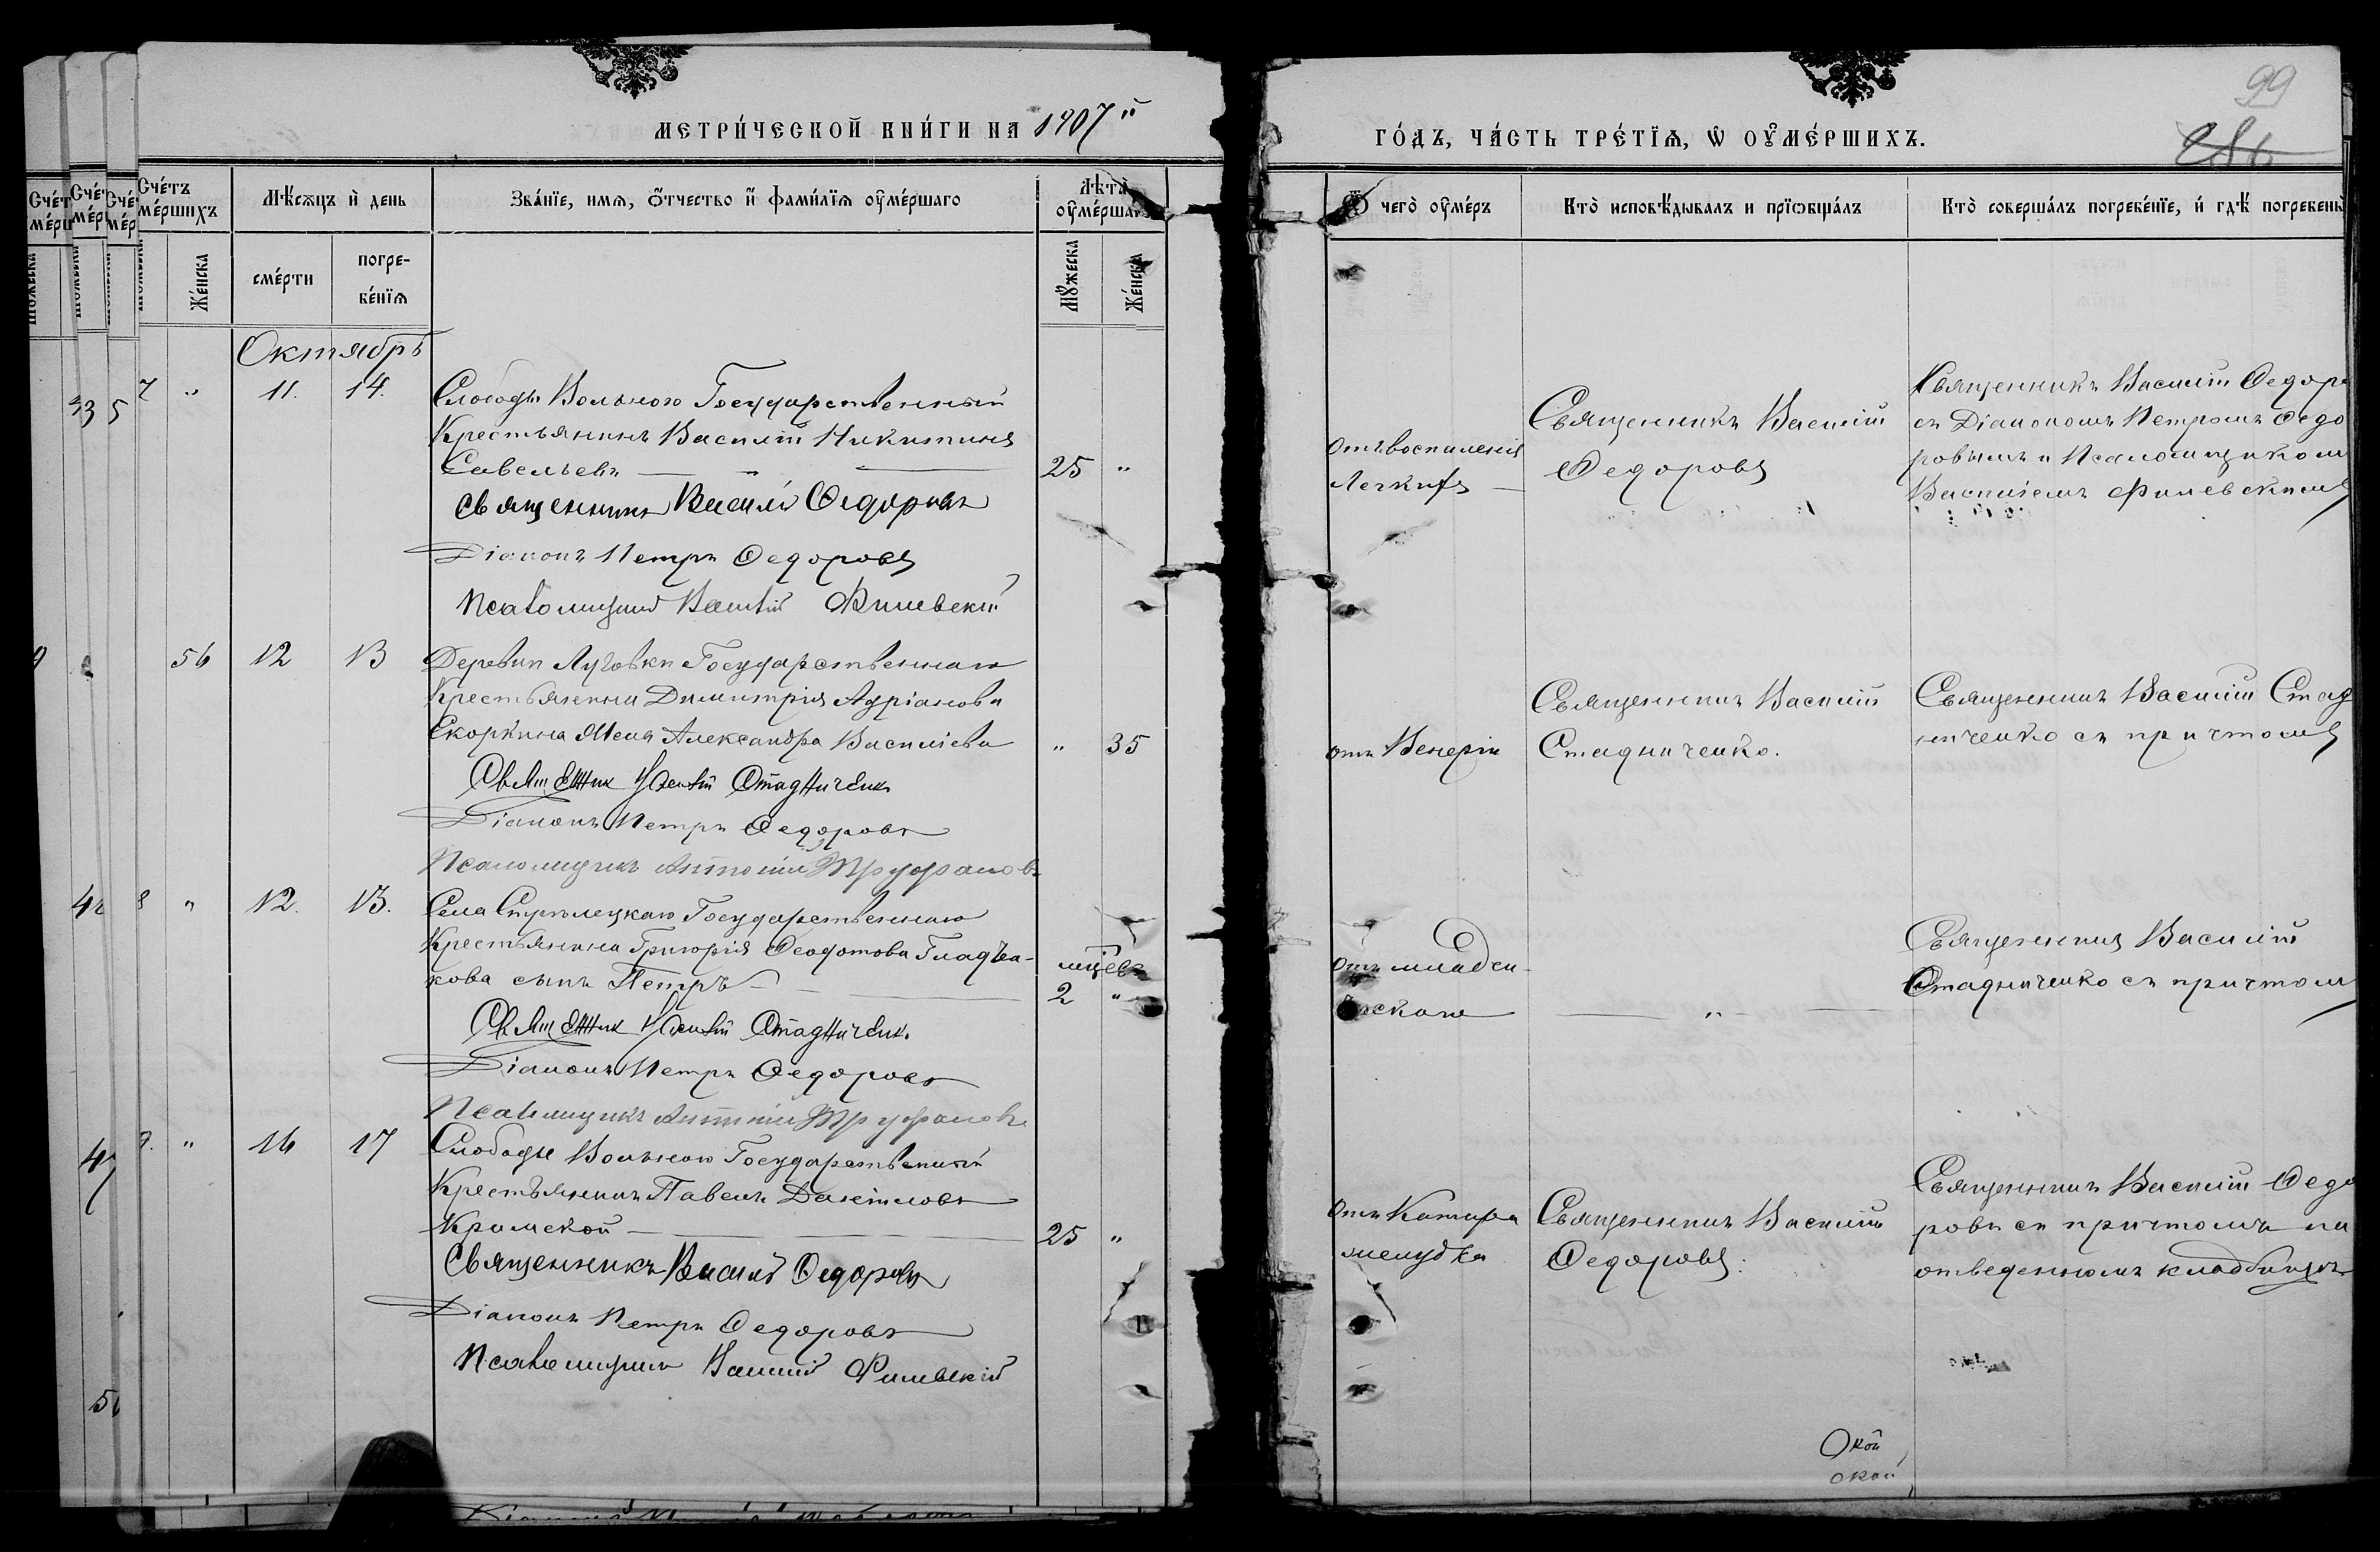 МЕТРИ́ЧЕСКОЙ КНИ́ГИ НА 1907й
ГО́ДЪ, ЧА́СТЬ ТРЕ́ТЇѦ, Ѡ ОУМЕ́РШИХЪ.
99
Сче́тъ
ме́ршихъ
Мѣ́сѧцъ и день
Зва́нїе, имѧ, о́тчество и фами́лїѧ оуме́ршаго
Лѣта̀
оуме́ршаго
Ѿ чего̀ оуме́ръ
Кто̀ исповѣ́дывалъ и прїѡбща́лъ
Кто̀ соверша́лъ погребе́нїе, и гдѣ̀ погребены̀
Же́нска
сме́рти
погре-
бе́нїѧ
Мꙋ́жеска
Же́нска
Октябрь
7 " 11. 14.
Слободы Вольного Государственный
Крестьянинъ Василій Никитинъ
Савельевъ — " — 25 "
Священникъ Василій Федоровъ
Діаконъ Петръ Федоровъ
Псаломщикъ Василій Филевскій
Отъ воспаленія
Легкихъ —
Священникъ Василій
Федоровъ
Священникъ Василій Федоро
съ Діакономъ Петромъ Федо
ровымъ и Псаломщиком
Василіемъ Филевскимъ
56 12 13
Деревни Луговки Государственнаго
Крестьянина Димитрія Адріанова
Скоркина Жена Александра Василіева " 35
Священник Василій Стадниченко
Діаконъ Петръ Федоровъ
Псаломщикъ Антоній Труфановъ
отъ Венеріи
Священникъ Василій
Стадниченко.
Священникъ Василій Стад
ниченко съ причтомъ
8 " 12. 13.
Села Стрелецкаго Государственнаго
Крестьянина Григорія Феодотова
кова сынъ Петръ —
мцѣвъ
2 "
Священник Василій Стадниченко
Діаконъ Петръ Федоровъ
Псаломщикъ Антоній Труфановъ
Отъ младен-
ческаго
— " —
Священникъ Василій
Стадниченко съ причтом
9. " 16 17
Слободы Вольного Государственный
Крестьянинъ Павелъ Даніиловъ
Крамской — 25 "
Священникъ Василій Федоровъ
Діаконъ Петръ Федоровъ
Псаломщикъ Василій Филевскій
Отъ Катара
желудка
Священникъ Василій
Федоровъ.
Священникъ Василій Федо
ровъ съ причтомъ на
отведенномъ кладбищѣ
Окой
окой